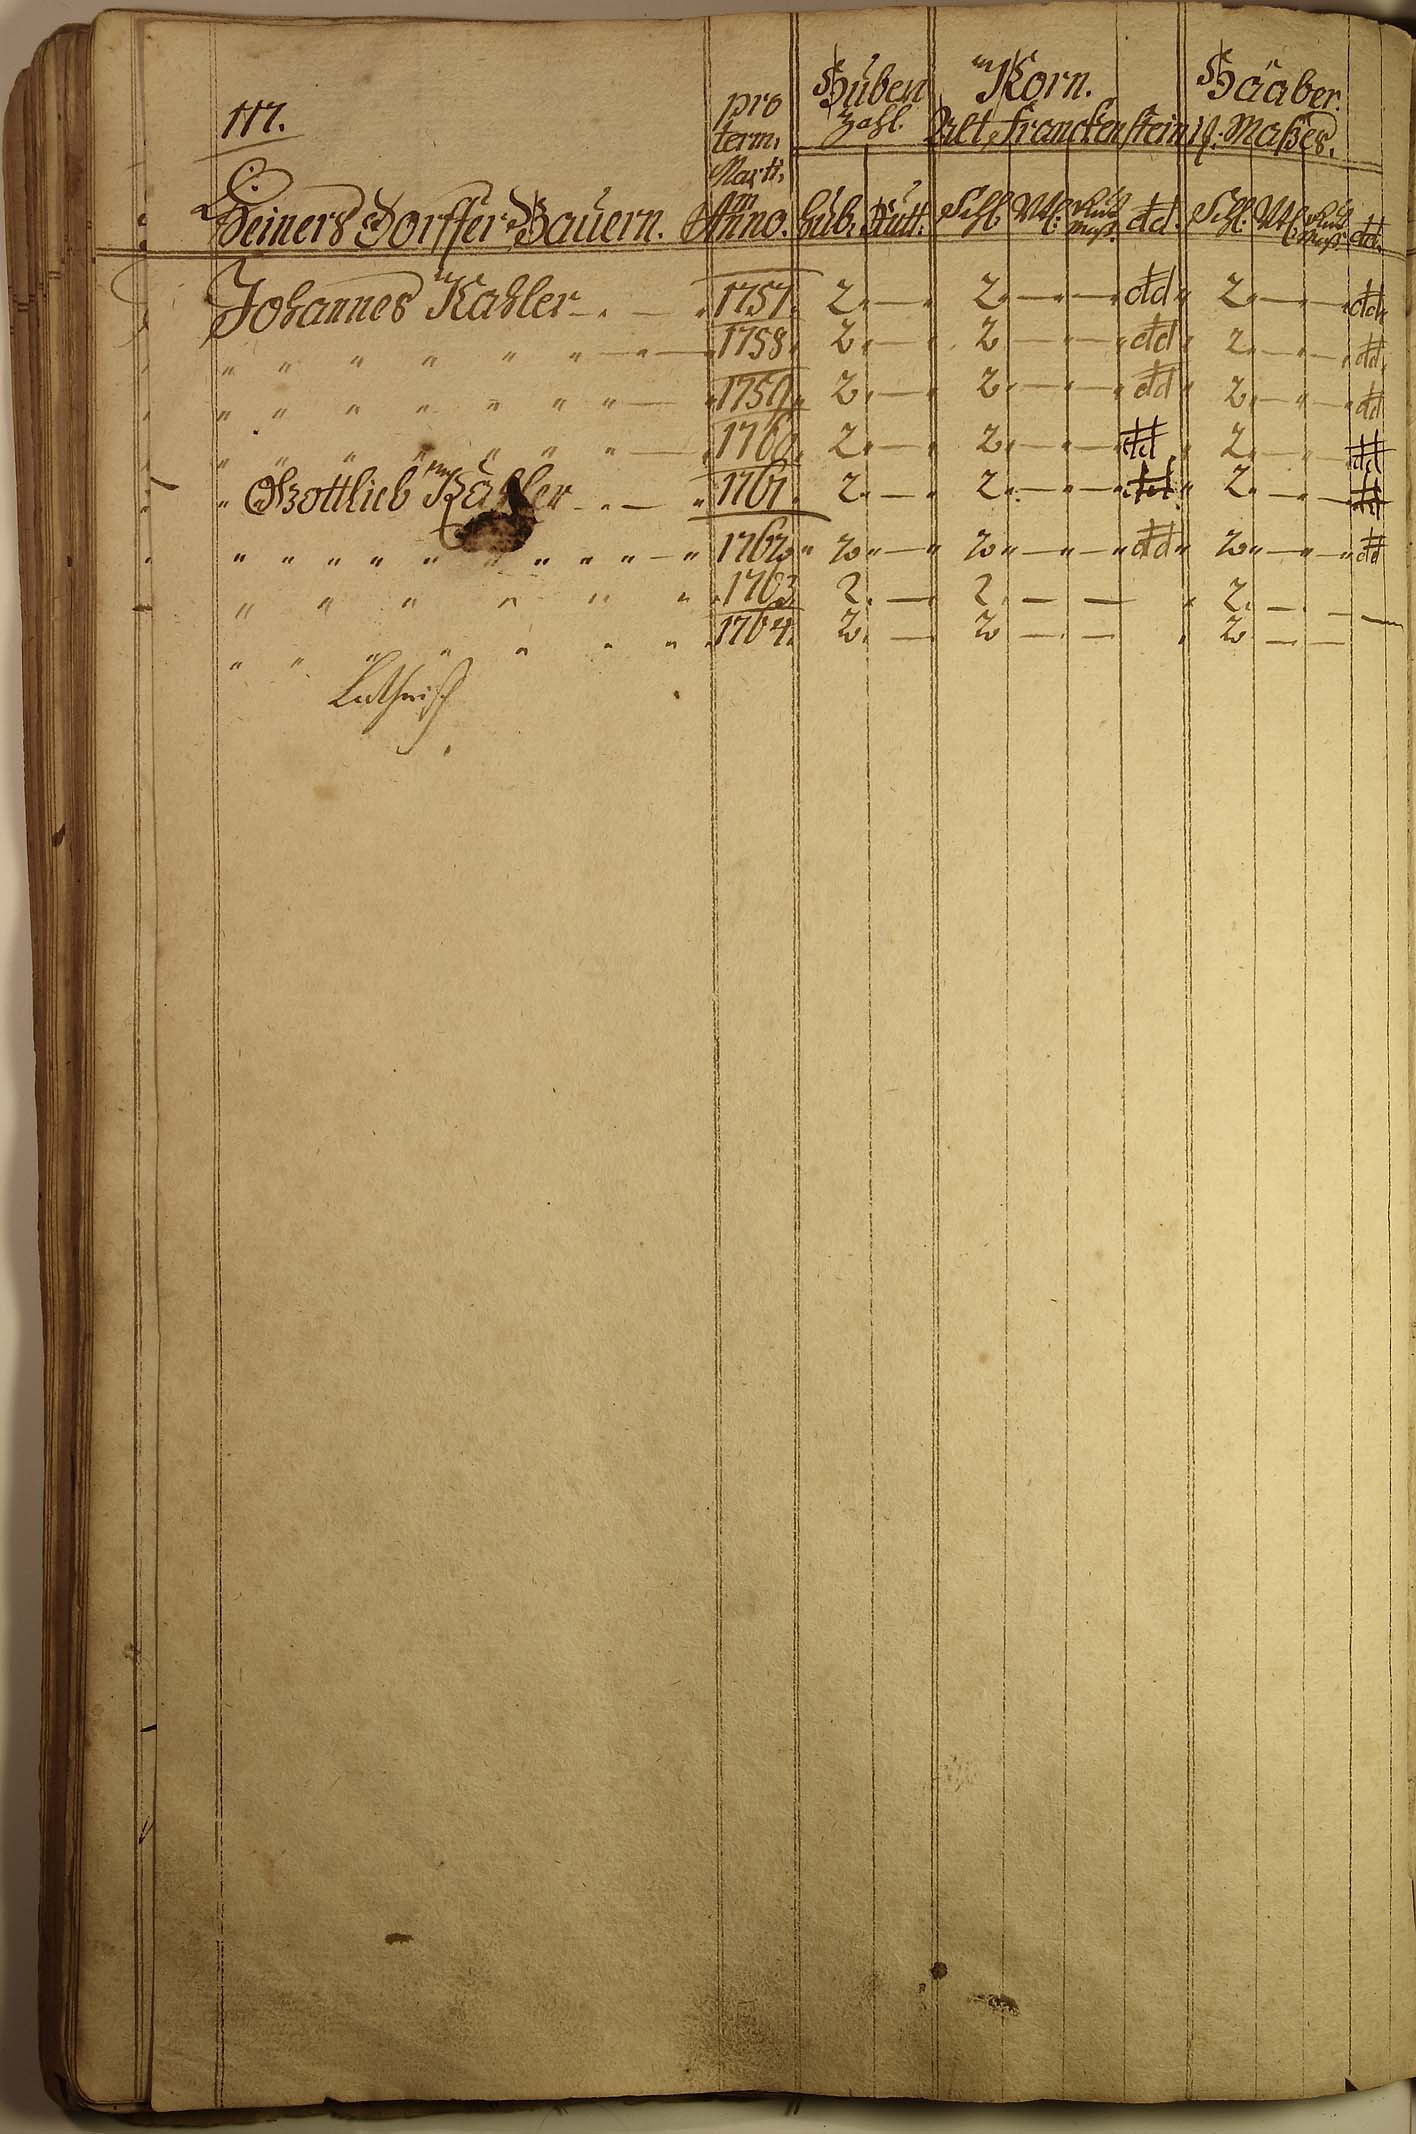 117.
pro term: Marti: in Anno.
Huben Zahl.
Korn.
Haaber.
Alt Franckensteini: Maßes.
Heiners Dorffer Bauern.
Hub. Rutt. Schl. Vtl: dd. Schl. Vtl: dd.
Johannes Kahler - . — . 1757. 2. — . 2. — . — . dd 2. — . — . dd
" " " " " " — . — . 1758. 2. — . 2 — . — . dd 2. — . — . dd
" " " " " " " — . 1759. 2. — . 2. — . — . dd 2. — " — . dd
" " " " " " " — . 1760. 2. — . 2. — . — . dd 2. — . — . dd
" Gottlieb Kahler - . — . 1761. 2. — . 2. — . — . dd 2. — . — . dd
" " " " " " " " " " — " 1762. 2 " — " 2 " — " — " dd 2 " — " — " dd
" " " " " " . 1763. 2. — . 2. — — 2. — . — —
" " " " " " " . 1764. 2. — 2 — . — 2 — —
Luthrisch